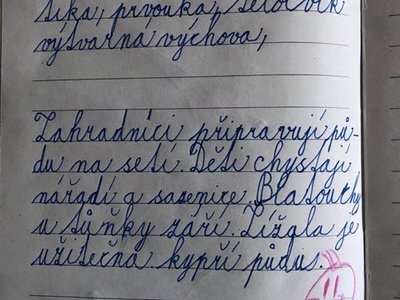 tika, prvouka, tělocvik
výtvarná výchova,
Zahradníci připravují pů-
du na setí. Děti chystají
nářadí a sazenice. Blatouchy
u tůňky září. Žížala je
užitečná kypří půdu.
1!